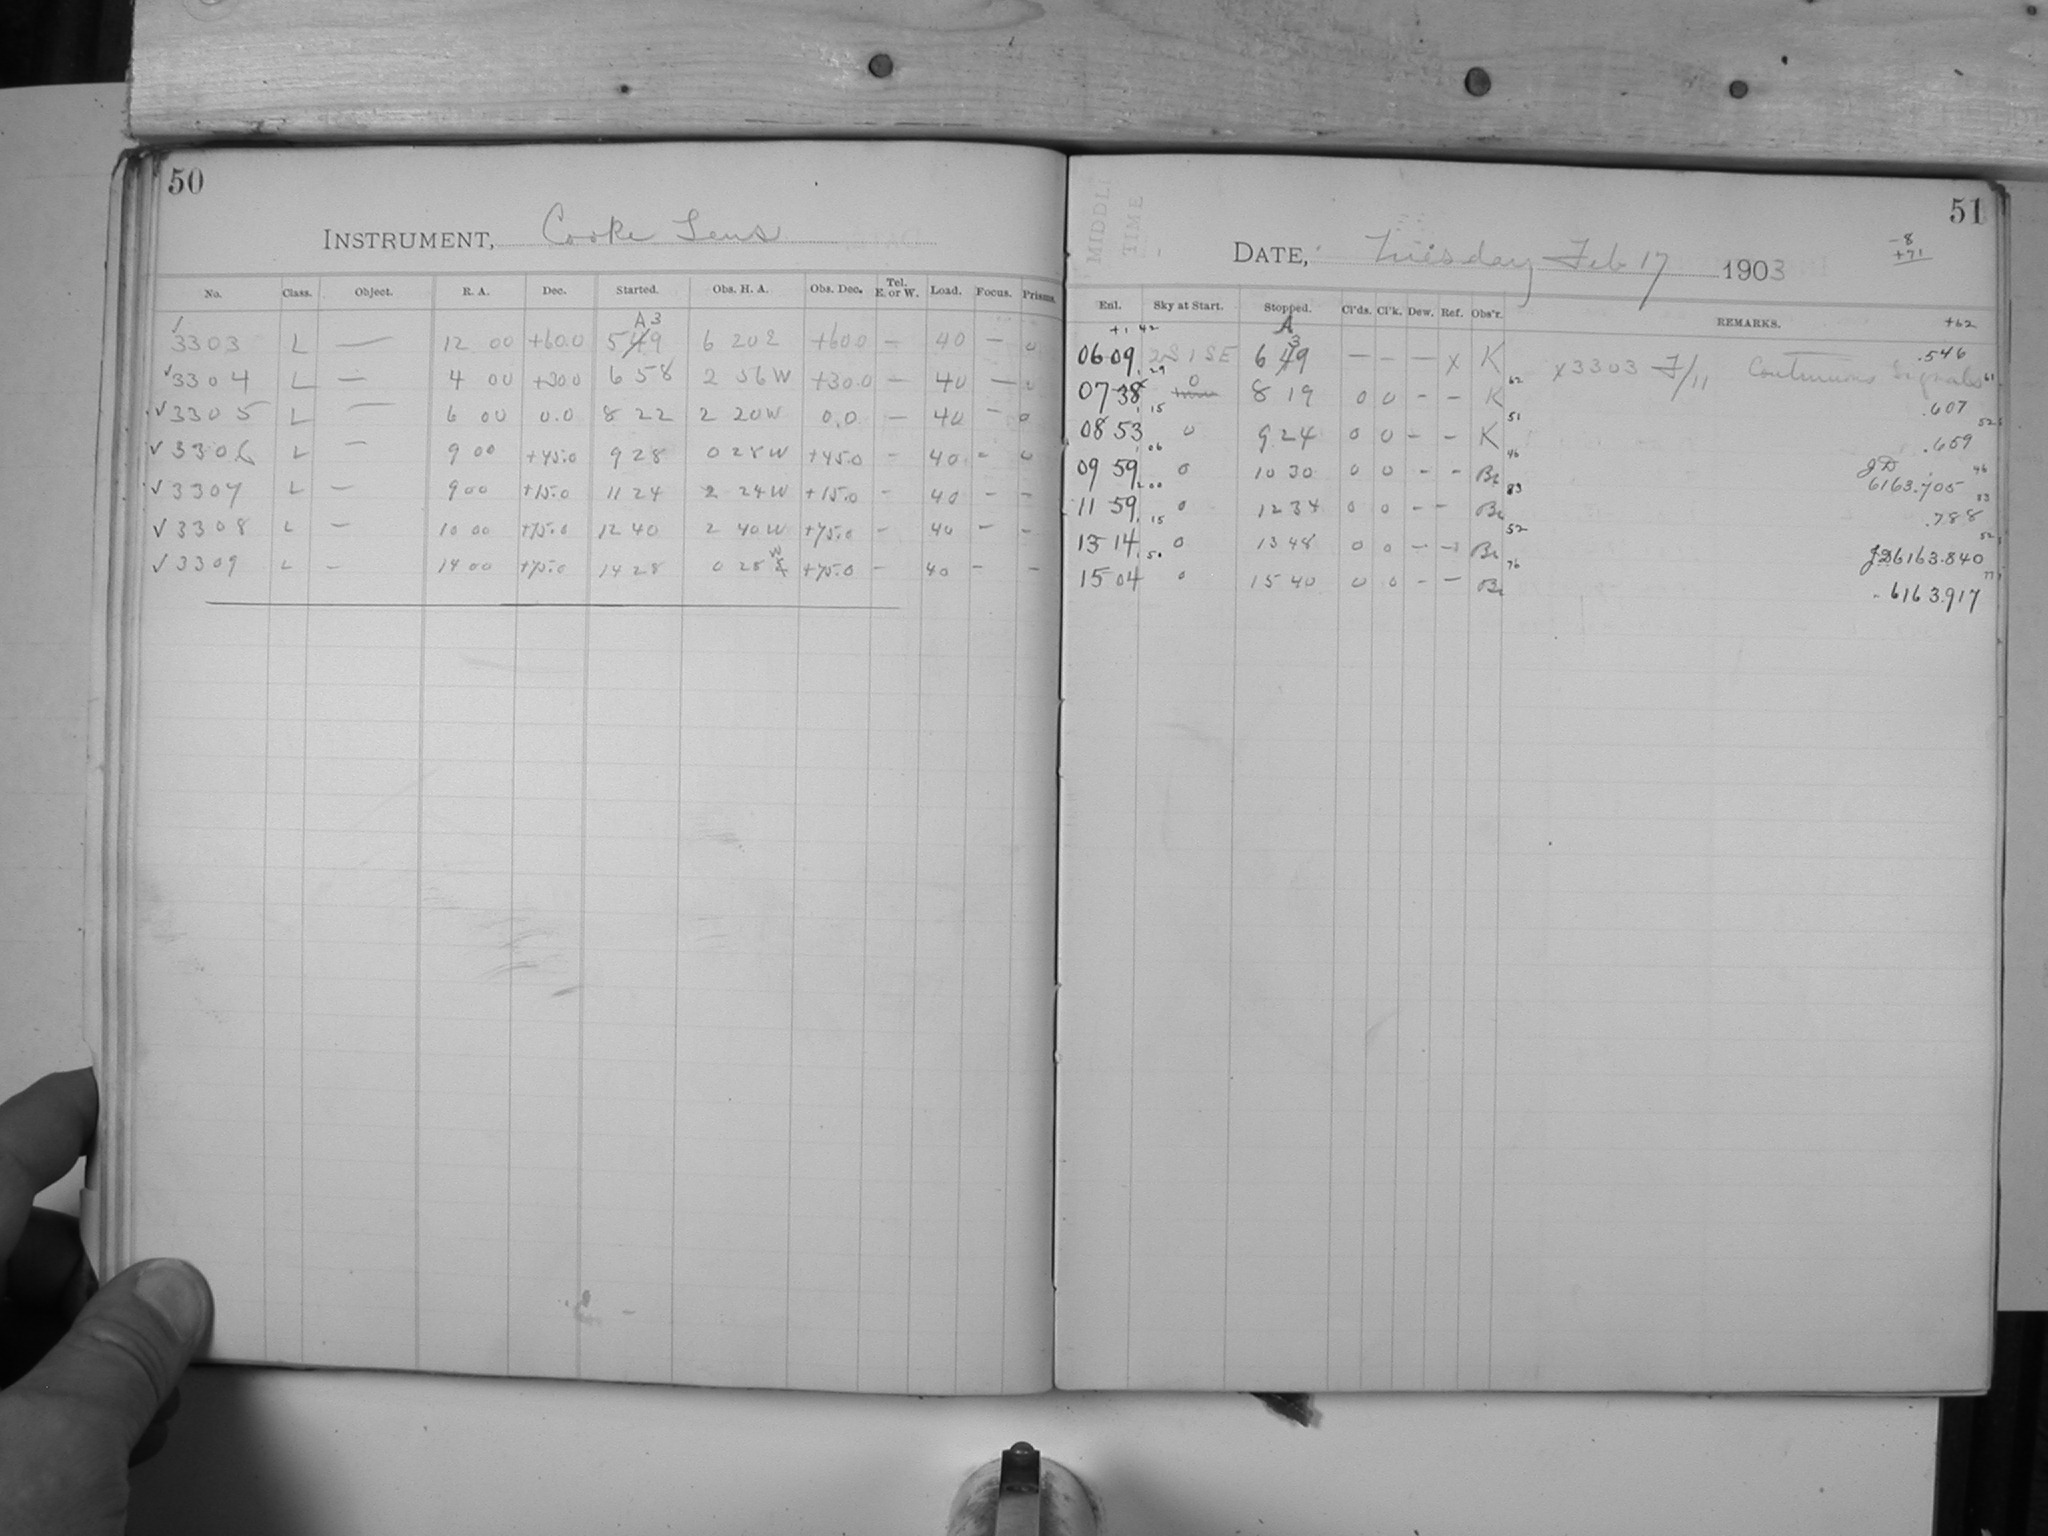 50
INSTRUMENT, Cooke Lens
No. Class. Object. R. A. Dec. Started. Obs. H. A. Obs. Dec. Tel. E. or W. Load. Focus. Prisms.
A 3
✓ 3303 L — 12 00 +60.0 5 49 6 20 E +60.0 — 40 — 0
✓ 3304 L — 4 00 +30.0 6 58 2 56 W +30.0 — 40 — 0
✓ 3305 L — 6 00 0.0 8 22 2 20 W 0.0 — 40 — 0
✓ 3306 L — 9 00 +45.0 9 28 0 28 W +45.0 — 40 - 0
✓ 3307 L — 9 00 +15.0 11 24 2 24 W +15.0 - 40 - -
✓ 3308 L — 10 00 +75.0 12 40 2 40 W +75.0 - 40 - -
✓ 3309 L - 14 00 +75.0 14 28 0 28 W +75.0 - 40 - -
51
MIDDL
TIME
DATE, Tuesday Feb 17 1903
-8
+71
Enl. Sky at Start. Stopped. Cl'ds. Cl'k. Dew. Ref. Obs'r. REMARKS.
+1 42 A 3 +62
06 09 2 S 1 SE 6 49 — — — x K x 3303 F/11 Continuous Signals .546
29 62 61
07 38 0 8 19 0 0 - - K .607
15 51 52
08 53 0 9 24 0 0 - - K .659
06 46 JD 46
09 59 0 10 30 0 0 - - Be 6163.705
2 00 83 83
11 59 0 12 34 0 0 - - Be .788
15 52 52
13 14 0 13 48 0 0 - - Be JD 6163.840
50 76 77
15 04 0 15 40 0 0 - - Be 6163.917